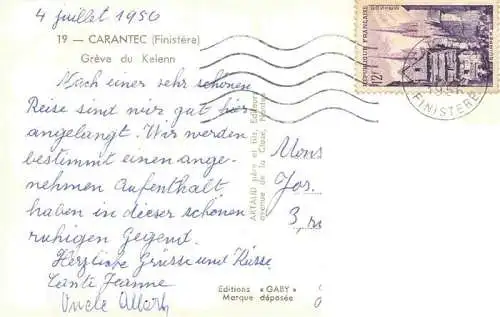 4 juillet 1956
19 — CARANTEC (Finistère)
Grève du Kelenn
Nach einer sehr schönen
Reise sind wir gut hier
angelangt. Wir werden
bestimmt einen ange-
nehmen Aufenthalt
haben in dieser schönen
ruhigen Gegend.
Herzliche Grüsse und Küsse
Tante Jeanne
Uncle Albert
ARTAUD père et fils, Editeurs
avenue de la Close, Nantes
Editions « GABY »
Marque déposée
Mons
Jos.
3, ru
REPUBLIQUE FRANÇAISE
12F
FINISTERE